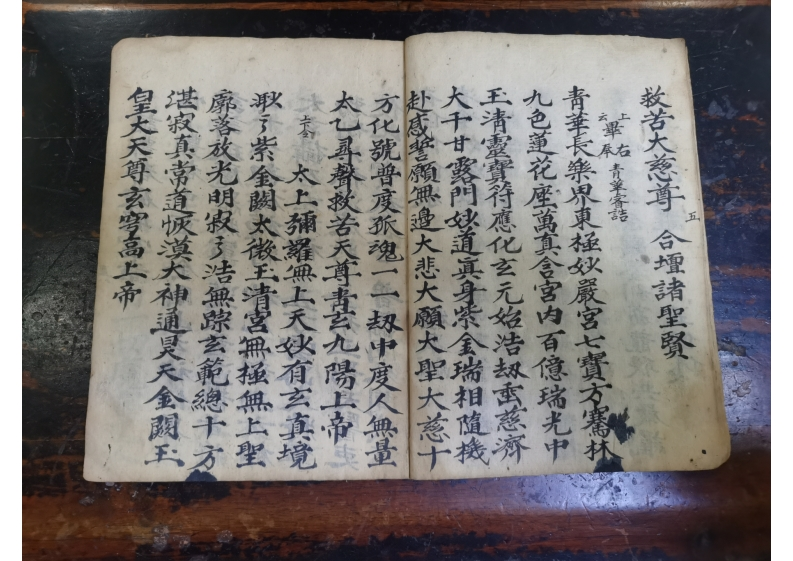 救苦大慈尊 合壇諸聖賢
五
青華長樂界東極妙嚴宮七寶方騫林
九色蓮花座萬真舍宮内百億瑞光中
玉清靈寶符應化玄元始浩刼垂慈濟
大千甘露門妙道眞身紫金瑞相隨機
赴感誓願無邊大悲大願大聖大慈十
方化號普度孤魂一一刼中度人無量
太乙尋聲救苦天尊青玄九陽上帝
太上彌羅無上天妙有玄真境
渺々紫金闕太微玉清宮無極無上聖
廓落放光明寂々浩無踪玄範總十方
湛寂真常道恢漠大神通昊天金闕玉
皇大天尊玄穹高上帝